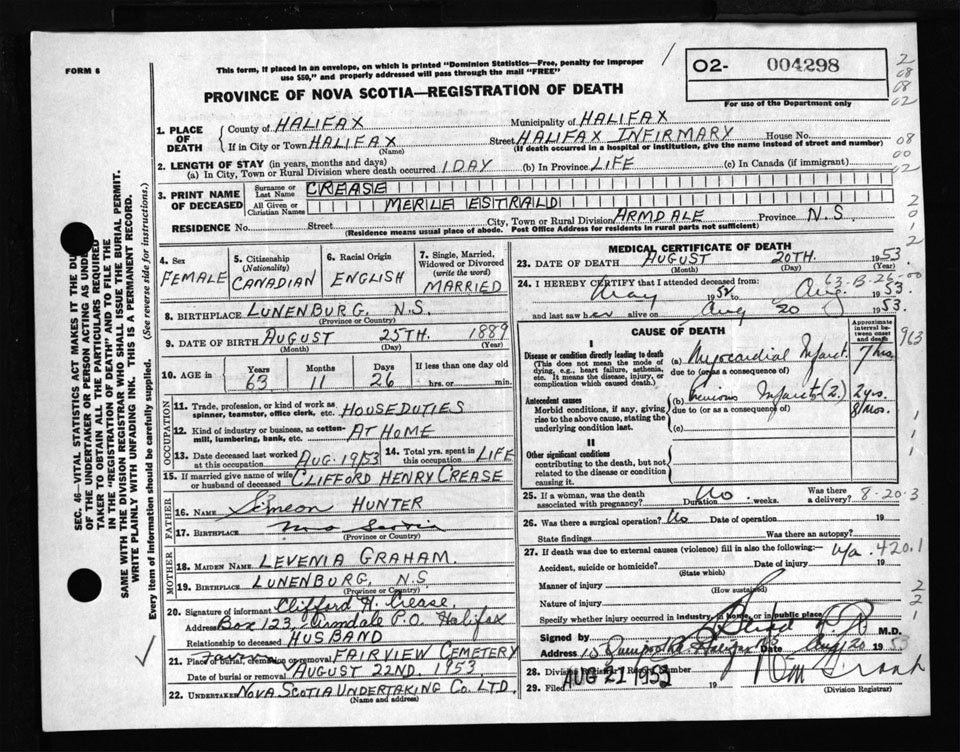 FORM 6
This form, if placed in an envelope, on which is printed "Dominion Statistics—Free, penalty for improper
use $50," and properly addressed will pass through the mail "FREE"
PROVINCE OF NOVA SCOTIA—REGISTRATION OF DEATH
O2- 004298
For use of the Department only
2
08
08
02
1. PLACE OF DEATH
County of HALIFAX Municipality of HALIFAX
If in City or Town HALIFAX Street HALIFAX INFIRMARY House No.
(Name) (If death occurred in a hospital or institution, give the name instead of street and number)
08
00
02
2. LENGTH OF STAY (in years, months and days)
(a) In City, Town or Rural Division where death occurred 1 DAY (b) In Province LIFE (c) In Canada (if immigrant)
3. PRINT NAME OF DECEASED
Surname or Last Name CREASE
All Given or Christian Names MERLE ESTRALD
RESIDENCE No. Street City, Town or Rural Division ARMDALE Province N.S.
(Residence means usual place of abode. Post Office Address for residents in rural parts not sufficient)
2
0
1
2
SEC. 46—VITAL STATISTICS ACT MAKES IT THE DU
OF THE UNDERTAKER OR PERSON ACTING AS UNDER
TAKER TO OBTAIN ALL THE PARTICULARS REQUIRED
IN THE "REGISTRATION OF DEATH" AND TO FILE THE
SAME WITH THE DIVISION REGISTRAR WHO SHALL ISSUE THE BURIAL PERMIT.
WRITE PLAINLY WITH UNFADING INK. THIS IS A PERMANENT RECORD.
Every item of information should be carefully supplied. (See reverse side for instructions.)
4. Sex FEMALE
5. Citizenship (Nationality) CANADIAN
6. Racial Origin ENGLISH
7. Single, Married, Widowed or Divorced (write the word) MARRIED
8. BIRTHPLACE LUNENBURG, N.S.
(Province or Country)
9. DATE OF BIRTH AUGUST 25TH. 1889
(Month) (Day) (Year)
10. AGE in Years 63 Months 11 Days 26 If less than one day old hrs. or min.
OCCUPATION
11. Trade, profession, or kind of work as spinner, teamster, office clerk, etc. HOUSEDUTIES
12. Kind of industry or business, as cotton-mill, lumbering, bank, etc. AT HOME
13. Date deceased last worked at this occupation AUG. 1953 14. Total yrs. spent in this occupation LIFE
15. If married give name of wife or husband of deceased CLIFFORD HENRY CREASE
FATHER
16. NAME Simeon HUNTER
17. BIRTHPLACE Nova Scotia
(Province or Country)
MOTHER
18. MAIDEN NAME LEVENIA GRAHAM.
19. BIRTHPLACE LUNENBURG, N.S.
(Province or Country)
20. Signature of informant Clifford H. Crease.
Address Box 123, Armdale P.O. Halifax
Relationship to deceased HUSBAND
21. Place of burial, cremation or removal FAIRVIEW CEMETERY
Date of burial or removal AUGUST 22ND. 1953
22. UNDERTAKER NOVA SCOTIA UNDERTAKING CO. LTD.
(Name and address)
MEDICAL CERTIFICATE OF DEATH
23. DATE OF DEATH AUGUST 20TH. 1953
(Month) (Day) (Year)
63-B-26-00
24. I HEREBY CERTIFY that I attended deceased from:
May 195 to Aug. 1953.
and last saw her alive on Aug 20 1953.
CAUSE OF DEATH
Approximate interval between onset and death
963
I
Disease or condition directly leading to death
(This does not mean the mode of dying, e.g., heart failure, asthenia, etc. It means the disease, injury, or complication which caused death.)
(a) Myocardial Infarct. 7 hrs.
due to (or as a consequence of)
Antecedent causes
Morbid conditions, if any, giving rise to the above cause, stating the underlying condition last.
(b) Previous Infarcts (2) 2 yrs. 8 mos.
due to (or as a consequence of)
(c)
II
Other significant conditions
contributing to the death, but not related to the disease or condition causing it.
1
1
1
25. If a woman, was the death associated with pregnancy? No Duration weeks. Was there a delivery? 8-20-3
26. Was there a surgical operation? No Date of operation 19
State findings Was there an autopsy?
27. If death was due to external causes (violence) fill in also the following:— 420.1
Accident, suicide or homicide? Date of injury 19
(State which)
Manner of injury
(How sustained)
Nature of injury
Specify whether injury occurred in industry, in home, or in public place
2
2
1
Signed by M.D.
Address Halifax NS Date Aug 20 1953
28. Division Registrar's Record Number
29. Filed AUG 21 1953 19
(Division Registrar)